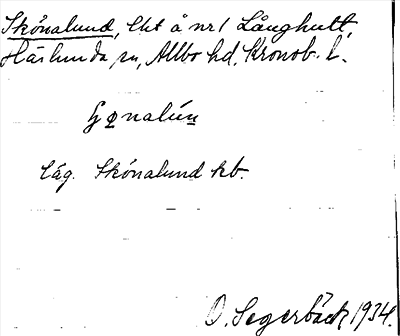 Skönalund, lht å nr 1 Långhult,
Härlunda sn, Allbo hd, Kronob. l.
ʃønalún
läg. Skönalund kb.
O. Segerbäck 1934.